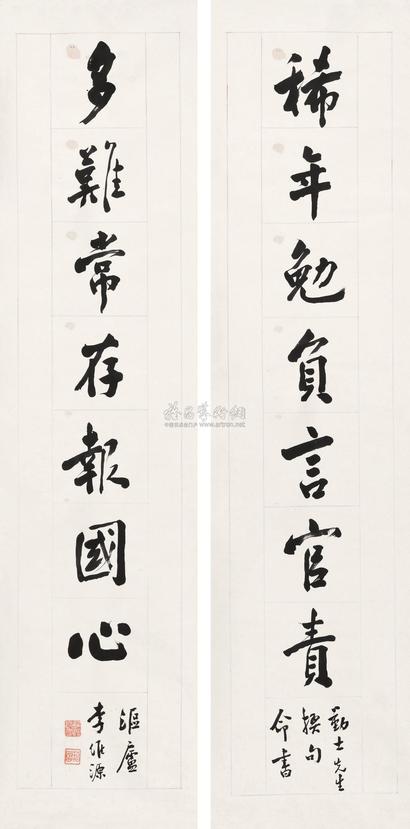 稀年勉負言官責
勤士先生
撰句
命書
多難常存報國心
漚廬
李作源
www.artron.net